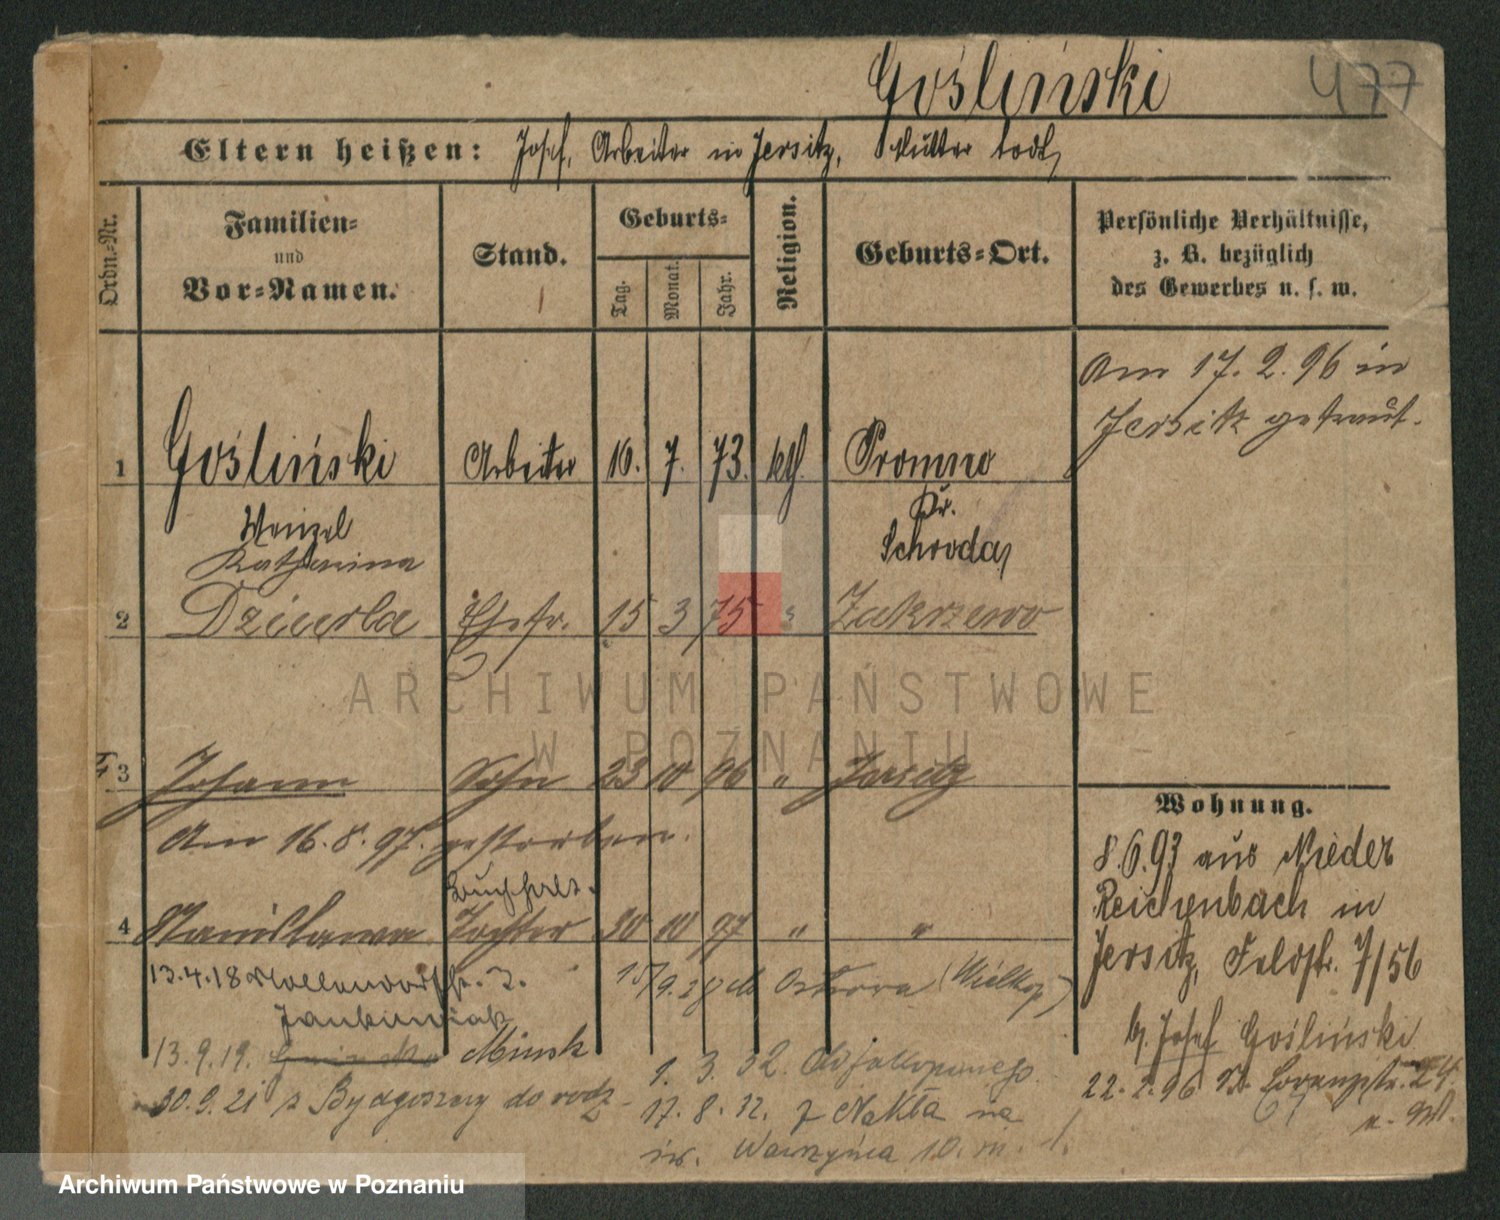 Gośliński 477
Eltern heißen: Josef, Arbeiter in Jersitz, Mutter todt
Ordn.-Nr.
Familien-
und
Vor-Namen.
Stand.
Geburts-
Tag.
Monat.
Jahr.
Religion.
Geburts-Ort.
Persönliche Verhältnisse,
z. B. bezüglich
des Gewerbes u. s. w.
Am 17. 2. 96 in
Jersitz getraut.
1 Gośliński Arbeiter 10. 7. 73. kth. Promno
Kr.
Wenzel
Schroda
Katharina
2 Dzierla Ehefr. 15 3 75 " Zakrzewo
3 Johann Sohn 23 10 96 " Jersitz
Am 16. 8. 97. gestorben.
Buchhalt.
4 Stanislawa Tochter 30 10 97 " "
13.4.18
13.9.19. Minsk
30.9.21 z Bydgoszczy do rodz
15/9. Ostrora (Wielkop)
1. 3. 32.
17. 8. 32. z Nakła na
św. Wawrzyńca 10. m. 1.
Wohnung.
8.6.93 aus Nieder
Reichenbach in
Jersitz, Feldstr. 7/56
b/ Josef Gośliński
22. 2. 96 Lorenzstr. 24.
ARCHIWUM PAŃSTWOWE
W POZNANIU
Archiwum Państwowe w Poznaniu